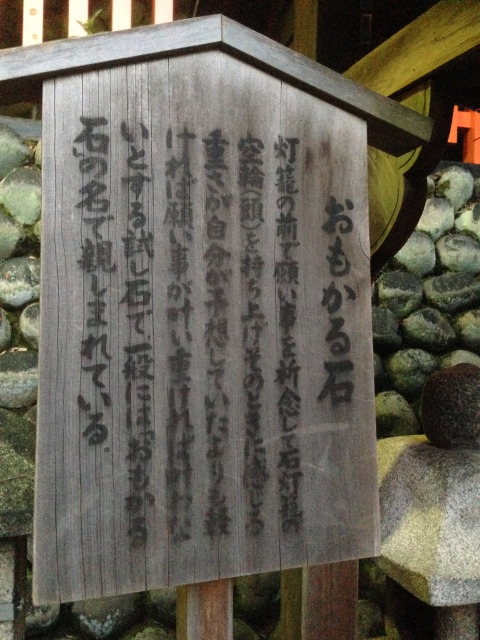 おもかる石
灯籠の前で願い事を祈念して石灯籠の
空輪(頭)を持ち上げそのときに感じる
重さが自分が予想していたよりも軽
ければ願い事が叶い重ければ叶わな
いとする試し石で一般には“おもかる
石”の名で親しまれている。